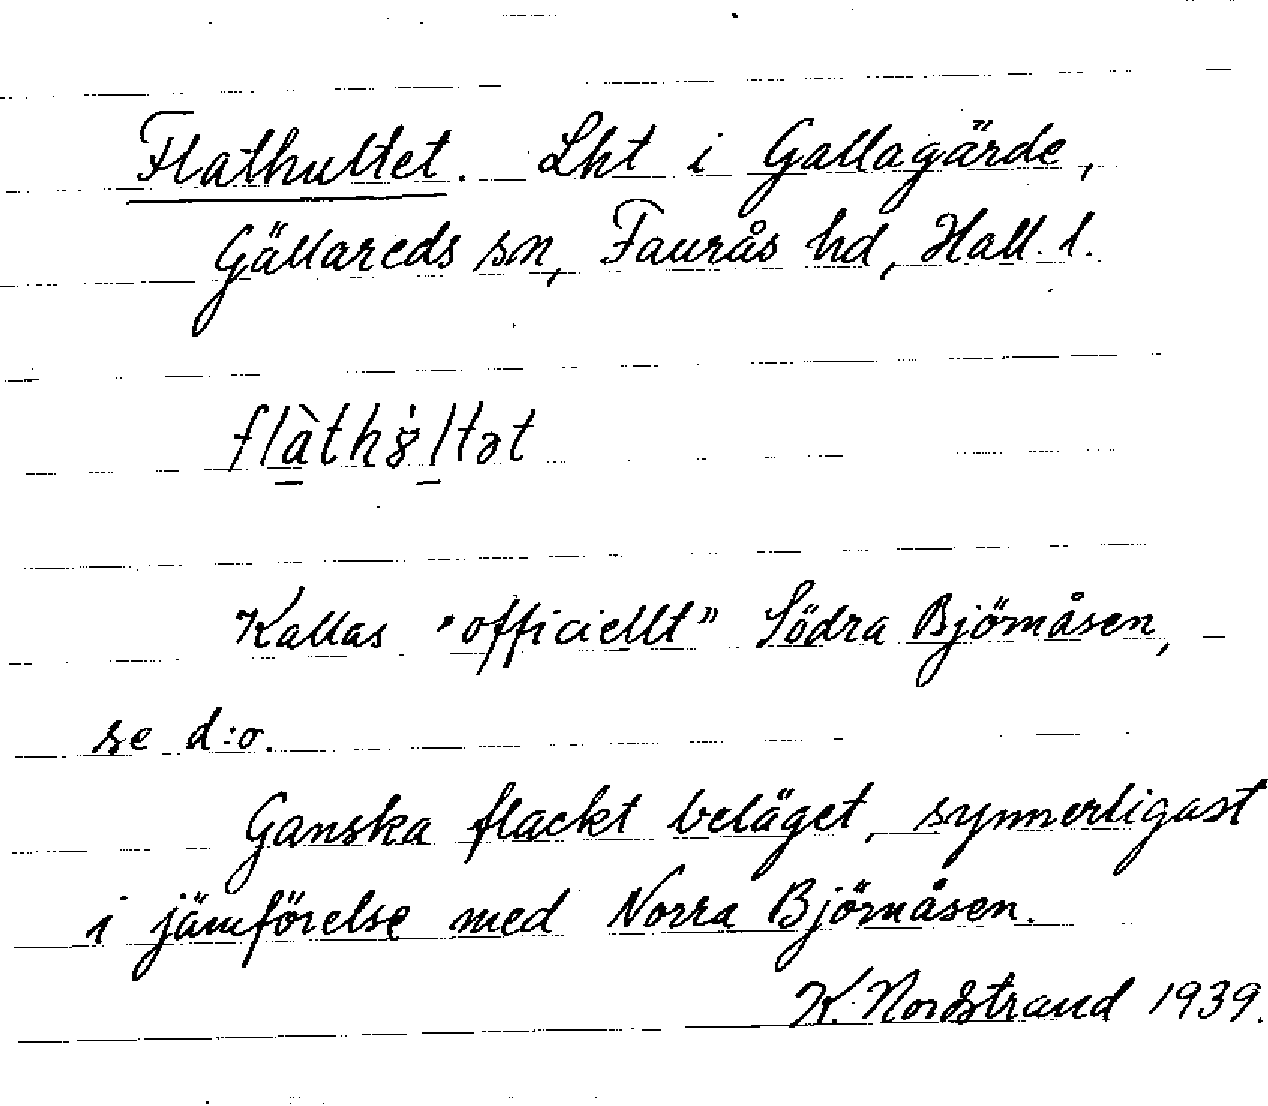 Flathultet. Lht i Gallagärde,
Gällareds sn, Faurås hd, Hall. l.
flàthꝏ̇ltət
Kallas "officiellt" Södra Björnåsen,
se d:o.
Ganska flackt beläget, synnerligast
i jämförelse med Norra Björnåsen.
K. Nordstrand 1939.